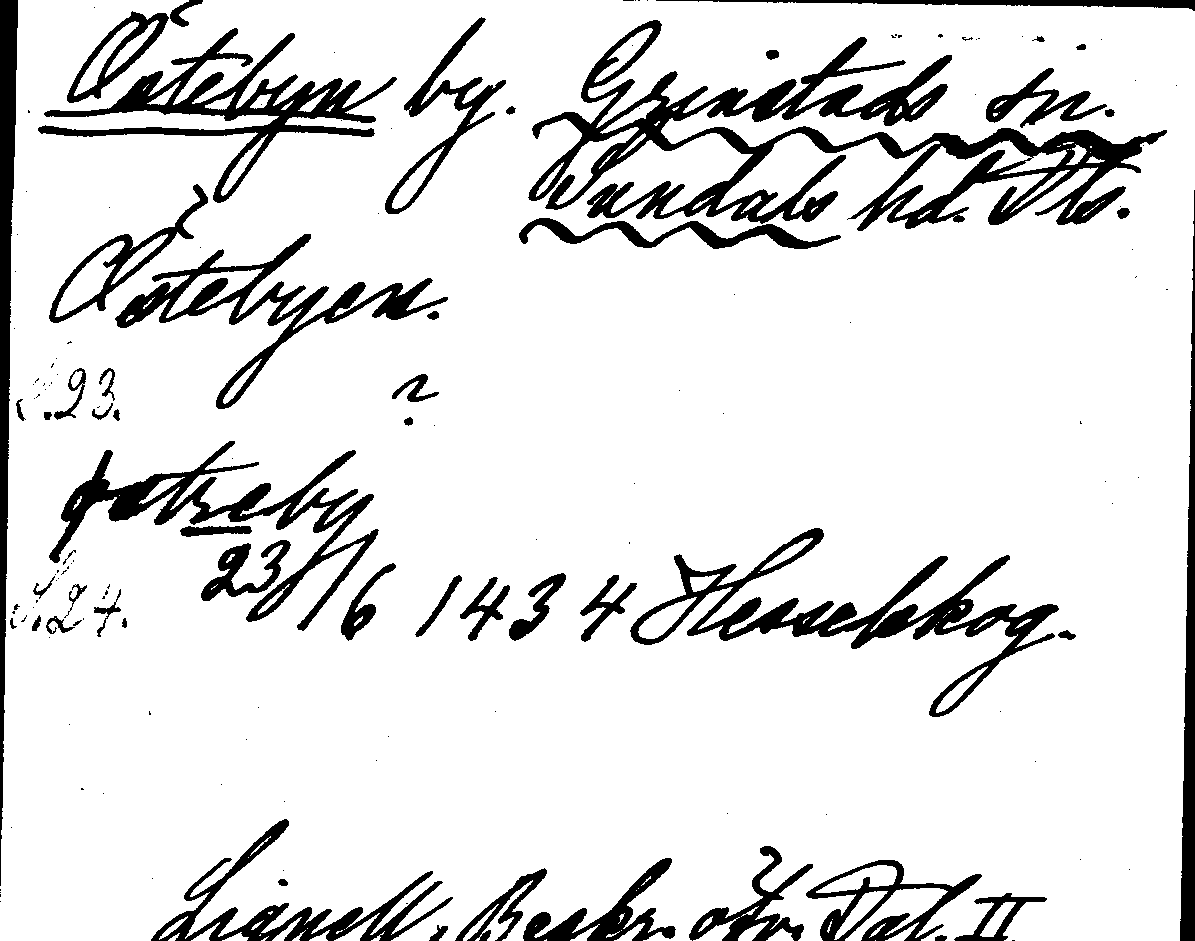 Östebyn by. Grinstads sn.
Sundals hd. Dls.
Östebyen.
S.23. ?
østreby
S.24. 23/6 1434 Hesselskog.
Lignell, Beskr. öfv. Dal. II